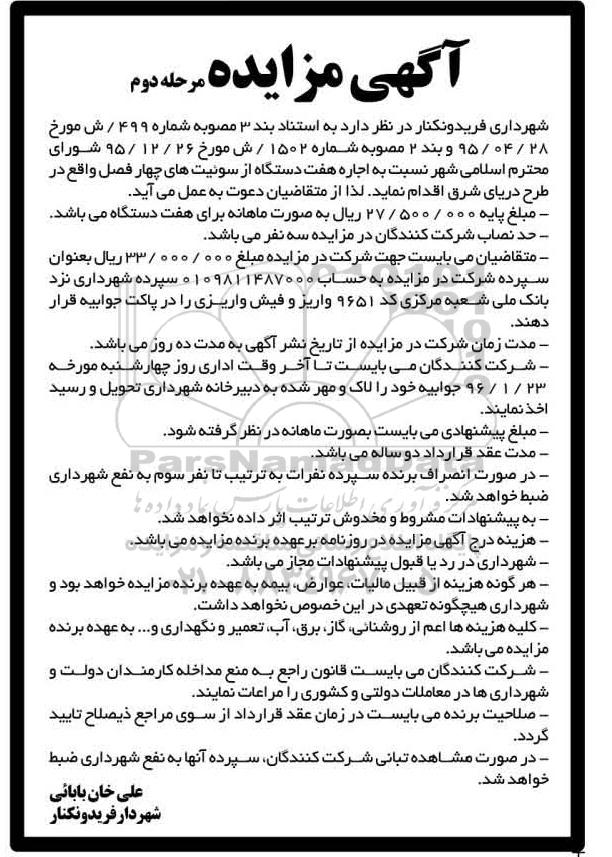 آگهی مزایده مرحله دوم
شهرداری فریدونکنار در نظر دارد به استناد بند ۳ مصوبه شماره ۴۹۹ / ش مورخ
۲۸ / ۰۴ / ۹۵ و بند ۲ مصوبه شماره ۱۵۰۲ / ش مورخ ۲۶ / ۱۲ / ۹۵ شورای
محترم اسلامی شهر نسبت به اجاره هفت دستگاه از سوئیت های چهار فصل واقع در
طرح دریای شرق اقدام نماید. لذا از متقاضیان دعوت به عمل می آید.
- مبلغ پایه ۲۷/۵۰۰/۰۰۰ ریال به صورت ماهانه برای هفت دستگاه می باشد.
- حد نصاب شرکت کنندگان در مزایده سه نفر می باشد.
- متقاضیان می بایست جهت شرکت در مزایده مبلغ ۳۳/۰۰۰/۰۰۰ ریال بعنوان
سپرده شرکت در مزایده به حساب ۰۱۰۹۸۱۱۴۸۷۰۰۰ سپرده شهرداری نزد
بانک ملی شعبه مرکزی کد ۹۶۵۱ واریز و فیش واریزی را در پاکت جوابیه قرار
دهند.
- مدت زمان شرکت در مزایده از تاریخ نشر آگهی به مدت ده روز می باشد.
- شرکت کنندگان می بایست تا آخر وقت اداری روز چهارشنبه مورخه
۲۳ / ۱ / ۹۶ جوابیه خود را لاک و مهر شده به دبیرخانه شهرداری تحویل و رسید
اخذ نمایند.
- مبلغ پیشنهادی می بایست بصورت ماهانه در نظر گرفته شود.
- مدت عقد قرارداد دو ساله می باشد.
ParsNamadData
- در صورت انصراف برنده سپرده نفرات به ترتیب تا نفر سوم به نفع شهرداری
ضبط خواهد شد.
- به پیشنهادات مشروط و مخدوش ترتیب اثر داده نخواهد شد.
- هزینه درج آگهی مزایده در روزنامه بر عهده برنده مزایده می باشد.
- شهرداری در رد یا قبول پیشنهادات مجاز می باشد.
- هر گونه هزینه از قبیل مالیات، عوارض، بیمه به عهده برنده مزایده خواهد بود و
شهرداری هیچگونه تعهدی در این خصوص نخواهد داشت.
- کلیه هزینه ها اعم از روشنائی، گاز، برق، آب، تعمیر و نگهداری و... به عهده برنده
مزایده می باشد.
- شرکت کنندگان می بایست قانون راجع به منع مداخله کارمندان دولت و
شهرداری ها در معاملات دولتی و کشوری را مراعات نمایند.
- صلاحیت برنده می بایست در زمان عقد قرارداد از سوی مراجع ذیصلاح تایید
گردد.
- در صورت مشاهده تبانی شرکت کنندگان، سپرده آنها به نفع شهرداری ضبط
خواهد شد.
علی خان بابائی
شهردار فریدونکنار